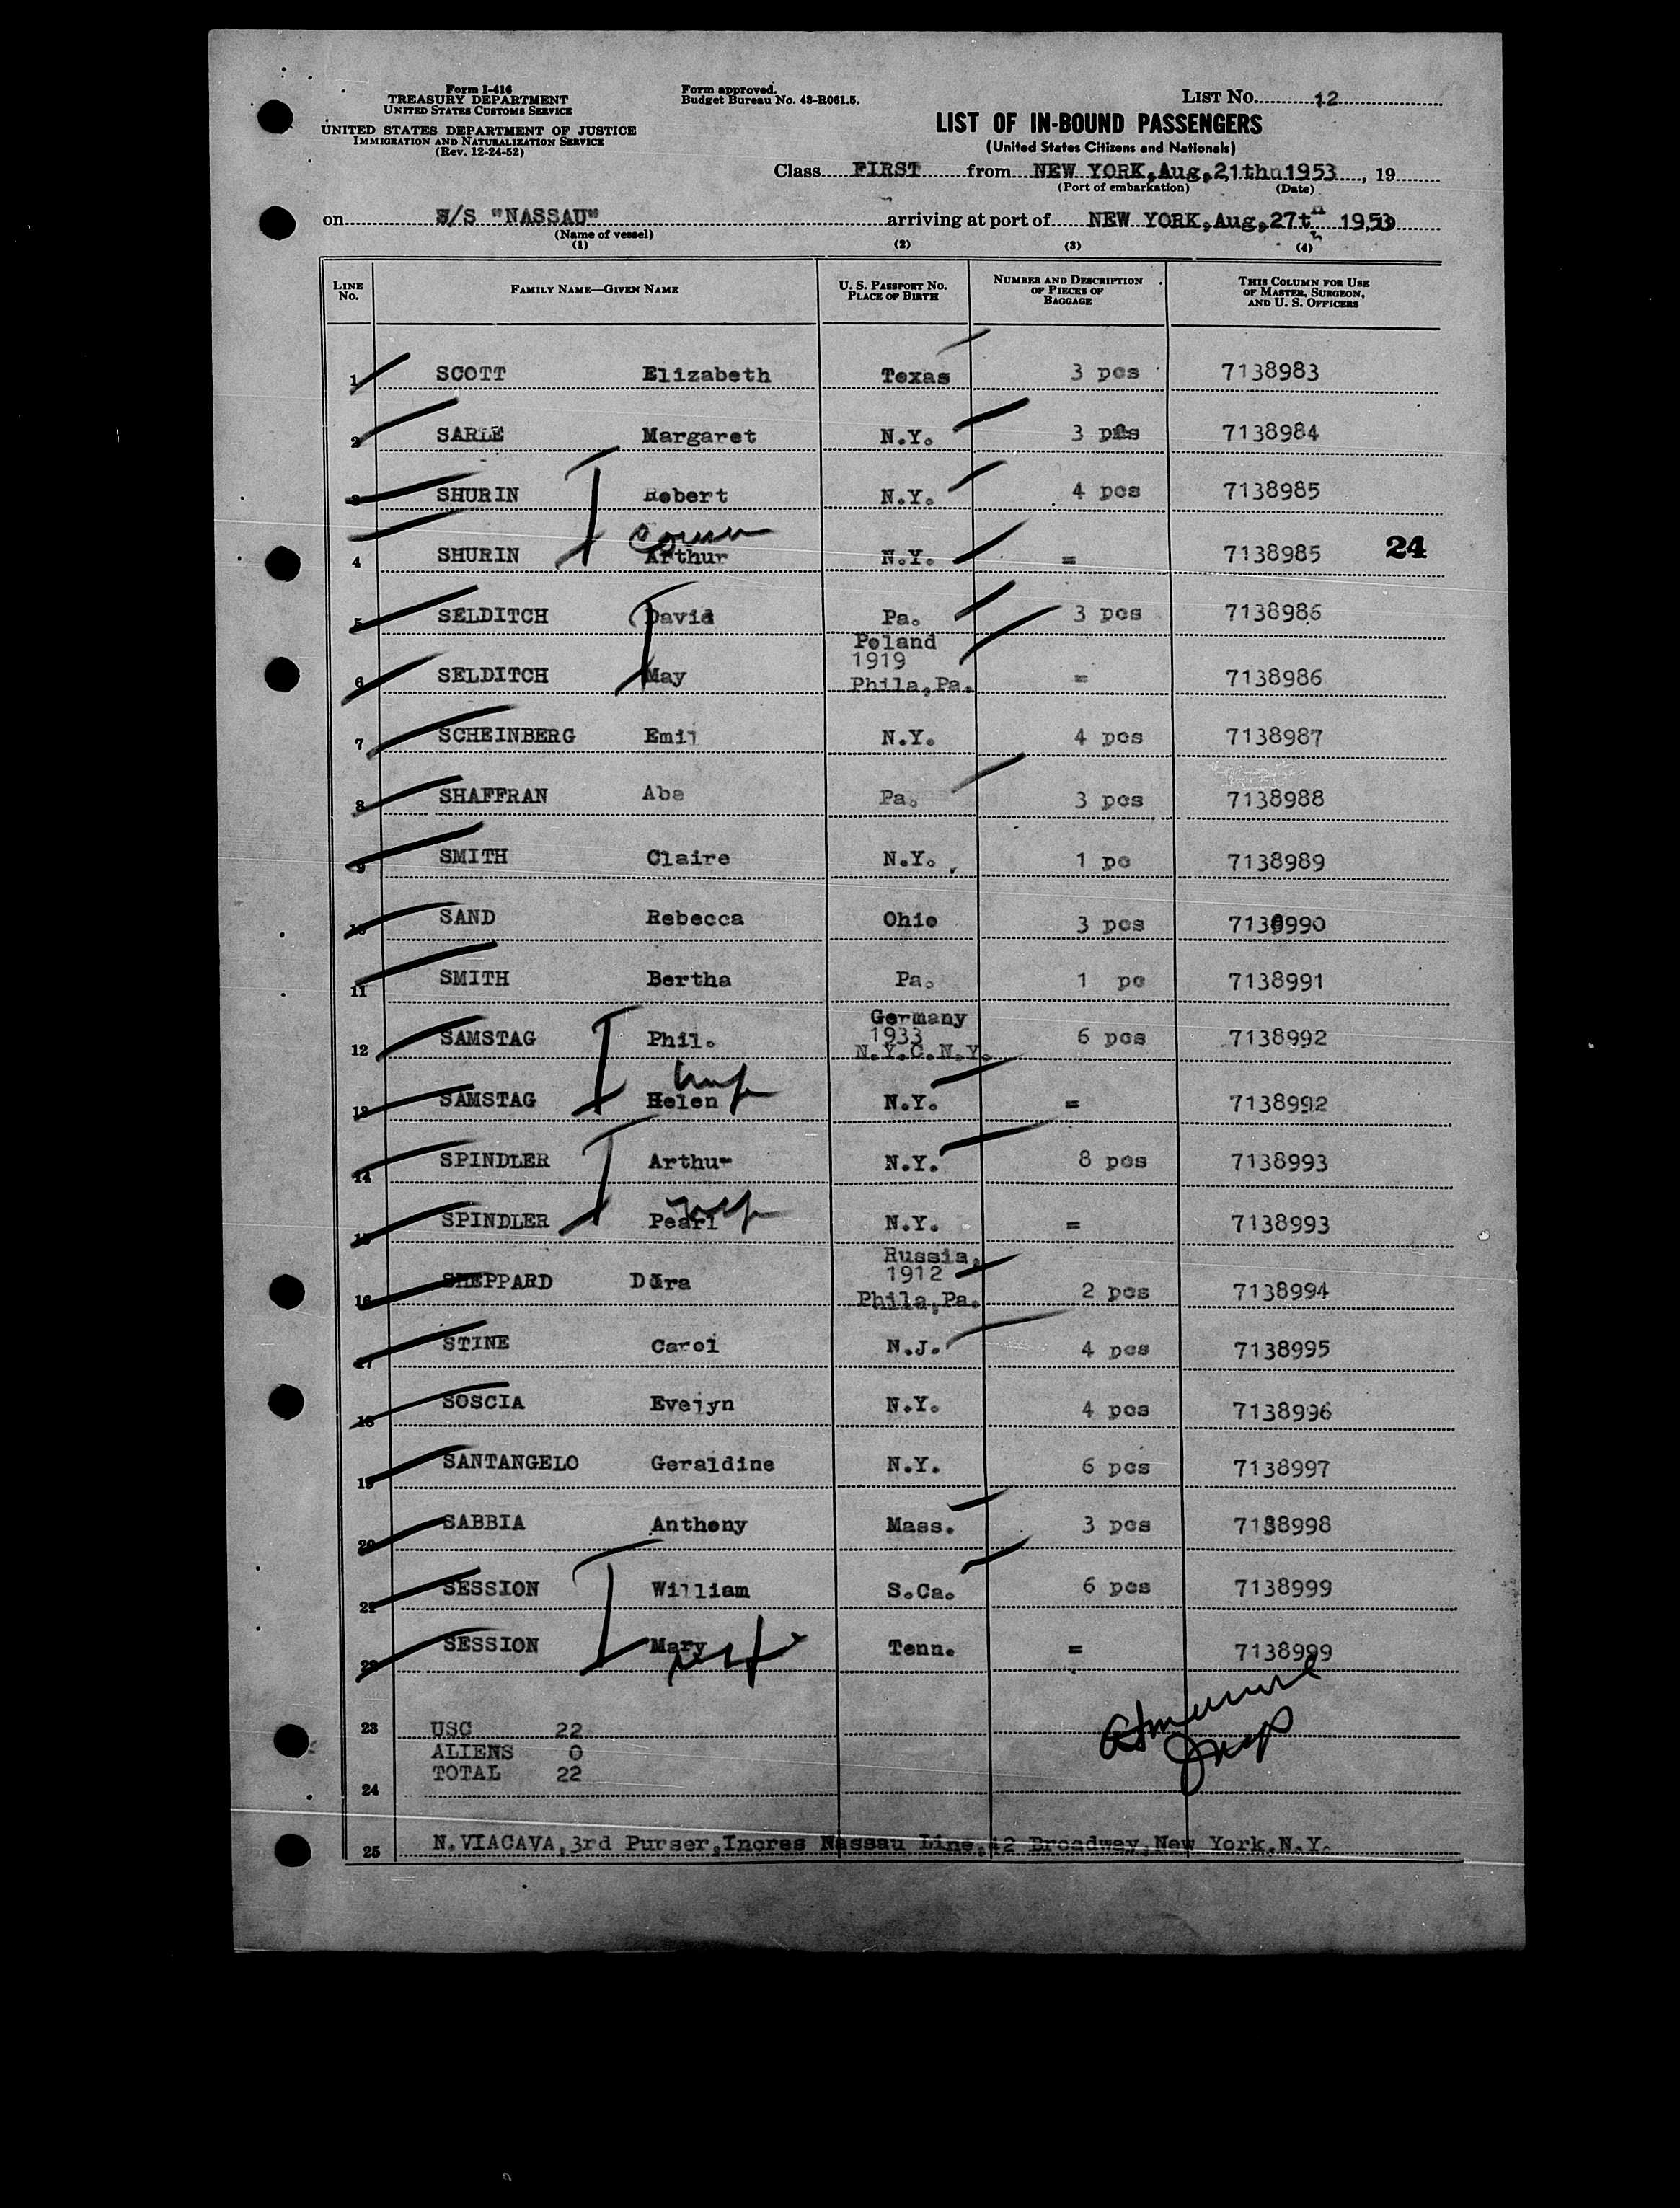 Form I-416
TREASURY DEPARTMENT
UNITED STATES CUSTOMS SERVICE
UNITED STATES DEPARTMENT OF JUSTICE
IMMIGRATION AND NATURALIZATION SERVICE
(Rev. 12-24-52)
Form approved.
Budget Bureau No. 43-R061.5.
LIST No. 12
LIST OF IN-BOUND PASSENGERS
(United States Citizens and Nationals)
Class FIRST from NEW YORK,Aug,21thu1953, 19
(Port of embarkation) (Date)
on S/S "NASSAU" arriving at port of NEW YORK,Aug,27th 1953
(Name of vessel)
(1) (2) (3) (4)
LINE No. FAMILY NAME—GIVEN NAME U. S. PASSPORT No. PLACE OF BIRTH NUMBER AND DESCRIPTION OF PIECES OF BAGGAGE THIS COLUMN FOR USE OF MASTER, SURGEON, AND U. S. OFFICERS
1 SCOTT Elizabeth Texas 3 pcs 7138983
2 SARLE Margaret N.Y. 3 pcs 7138984
3 SHURIN Robert N.Y. 4 pcs 7138985
4 SHURIN Arthur N.Y. = 7138985 24
5 SELDITCH David Pa. 3 pcs 7138986
6 SELDITCH May Poland 1919 Phila,Pa. = 7138986
7 SCHEINBERG Emil N.Y. 4 pcs 7138987
8 SHAFFRAN Abe Pa. 3 pcs 7138988
9 SMITH Claire N.Y. 1 pc 7138989
10 SAND Rebecca Ohio 3 pcs 7138990
11 SMITH Bertha Pa. 1 pc 7138991
12 SAMSTAG Phil. Germany 1933 N.Y.C.N.Y. 6 pcs 7138992
13 SAMSTAG Helen N.Y. = 7138992
14 SPINDLER Arthur N.Y. 8 pcs 7138993
15 SPINDLER Pearl N.Y. = 7138993
16 SHEPPARD Dora Russia, 1912 Phila,Pa. 2 pcs 7138994
17 STINE Carol N.J. 4 pcs 7138995
18 SOSCIA Evelyn N.Y. 4 pcs 7138996
19 SANTANGELO Geraldine N.Y. 6 pcs 7138997
20 SABBIA Anthony Mass. 3 pcs 7138998
21 SESSION William S.Ca. 6 pcs 7138999
22 SESSION Mary Tenn. = 7138999
23 USC 22
ALIENS 0
TOTAL 22
24
25 N.VIACAVA,3rd Purser,Incres Nassau Line,42 Broadway,New York,N.Y.